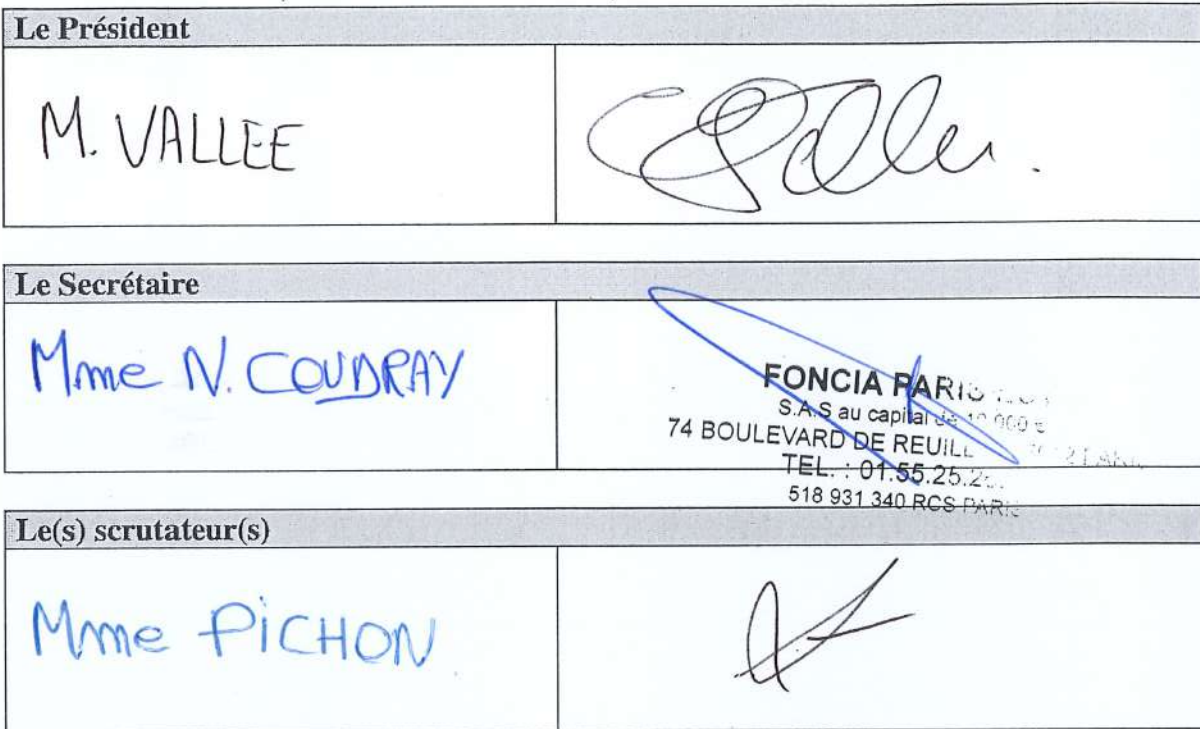 Le Président
M. VALLEE
Le Secrétaire
Mme N. COUDRAY
FONCIA PARIS
S.A.S au capital de 10 000 €
74 BOULEVARD DE REUILL
TEL. : 01.55.25.2
518 931 340 RCS PARIS
Le(s) scrutateur(s)
Mme PiCHON